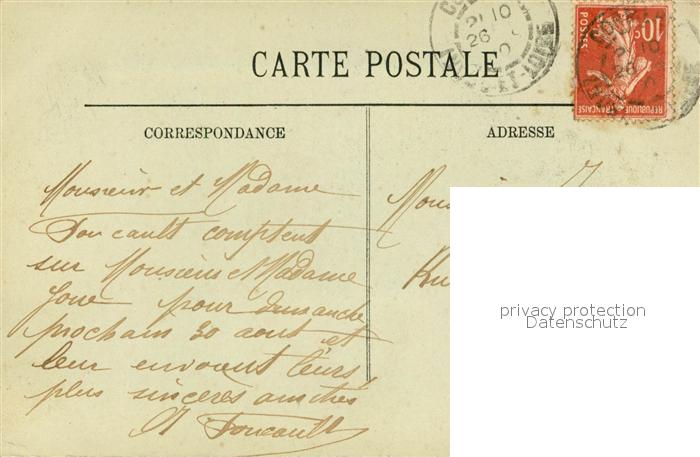 CARTE POSTALE
10c
POSTES
REPUBLIQUE FRANÇAISE
21 10
26
ET-LOIRE
CORRESPONDANCE
ADRESSE
Monsieur et Madame
Foucault comptent
sur Monsieur et Madame
pour dimanche
prochain 30 aout et
leur envoient leurs
plus sincères amitiés
Foucault
privacy protection
Datenschutz